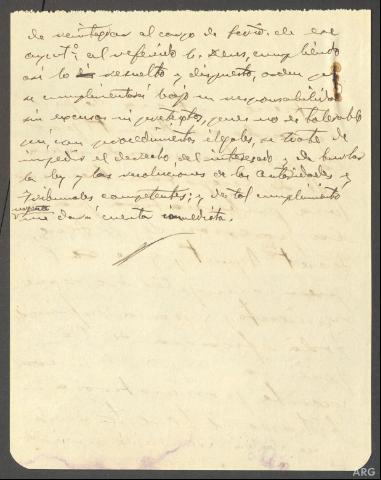 de reintegrar al cargo de Secrio. de ese
ayunto. al referido Sr. Deus, cumpliendo
así lo resuelto y dispuesto, orden que
se cumplimentará bajo su responsabilidad
sin excusas ni pretextos, pues no es tolerable
que, con procedimientos ilegales, se trate de
impedir el derecho del interesado y de burlar
la ley y las resoluciones de las Autoridades y
Tribunales competentes; y de tal cumplimiento
me dará cuenta inmediata.
ARG